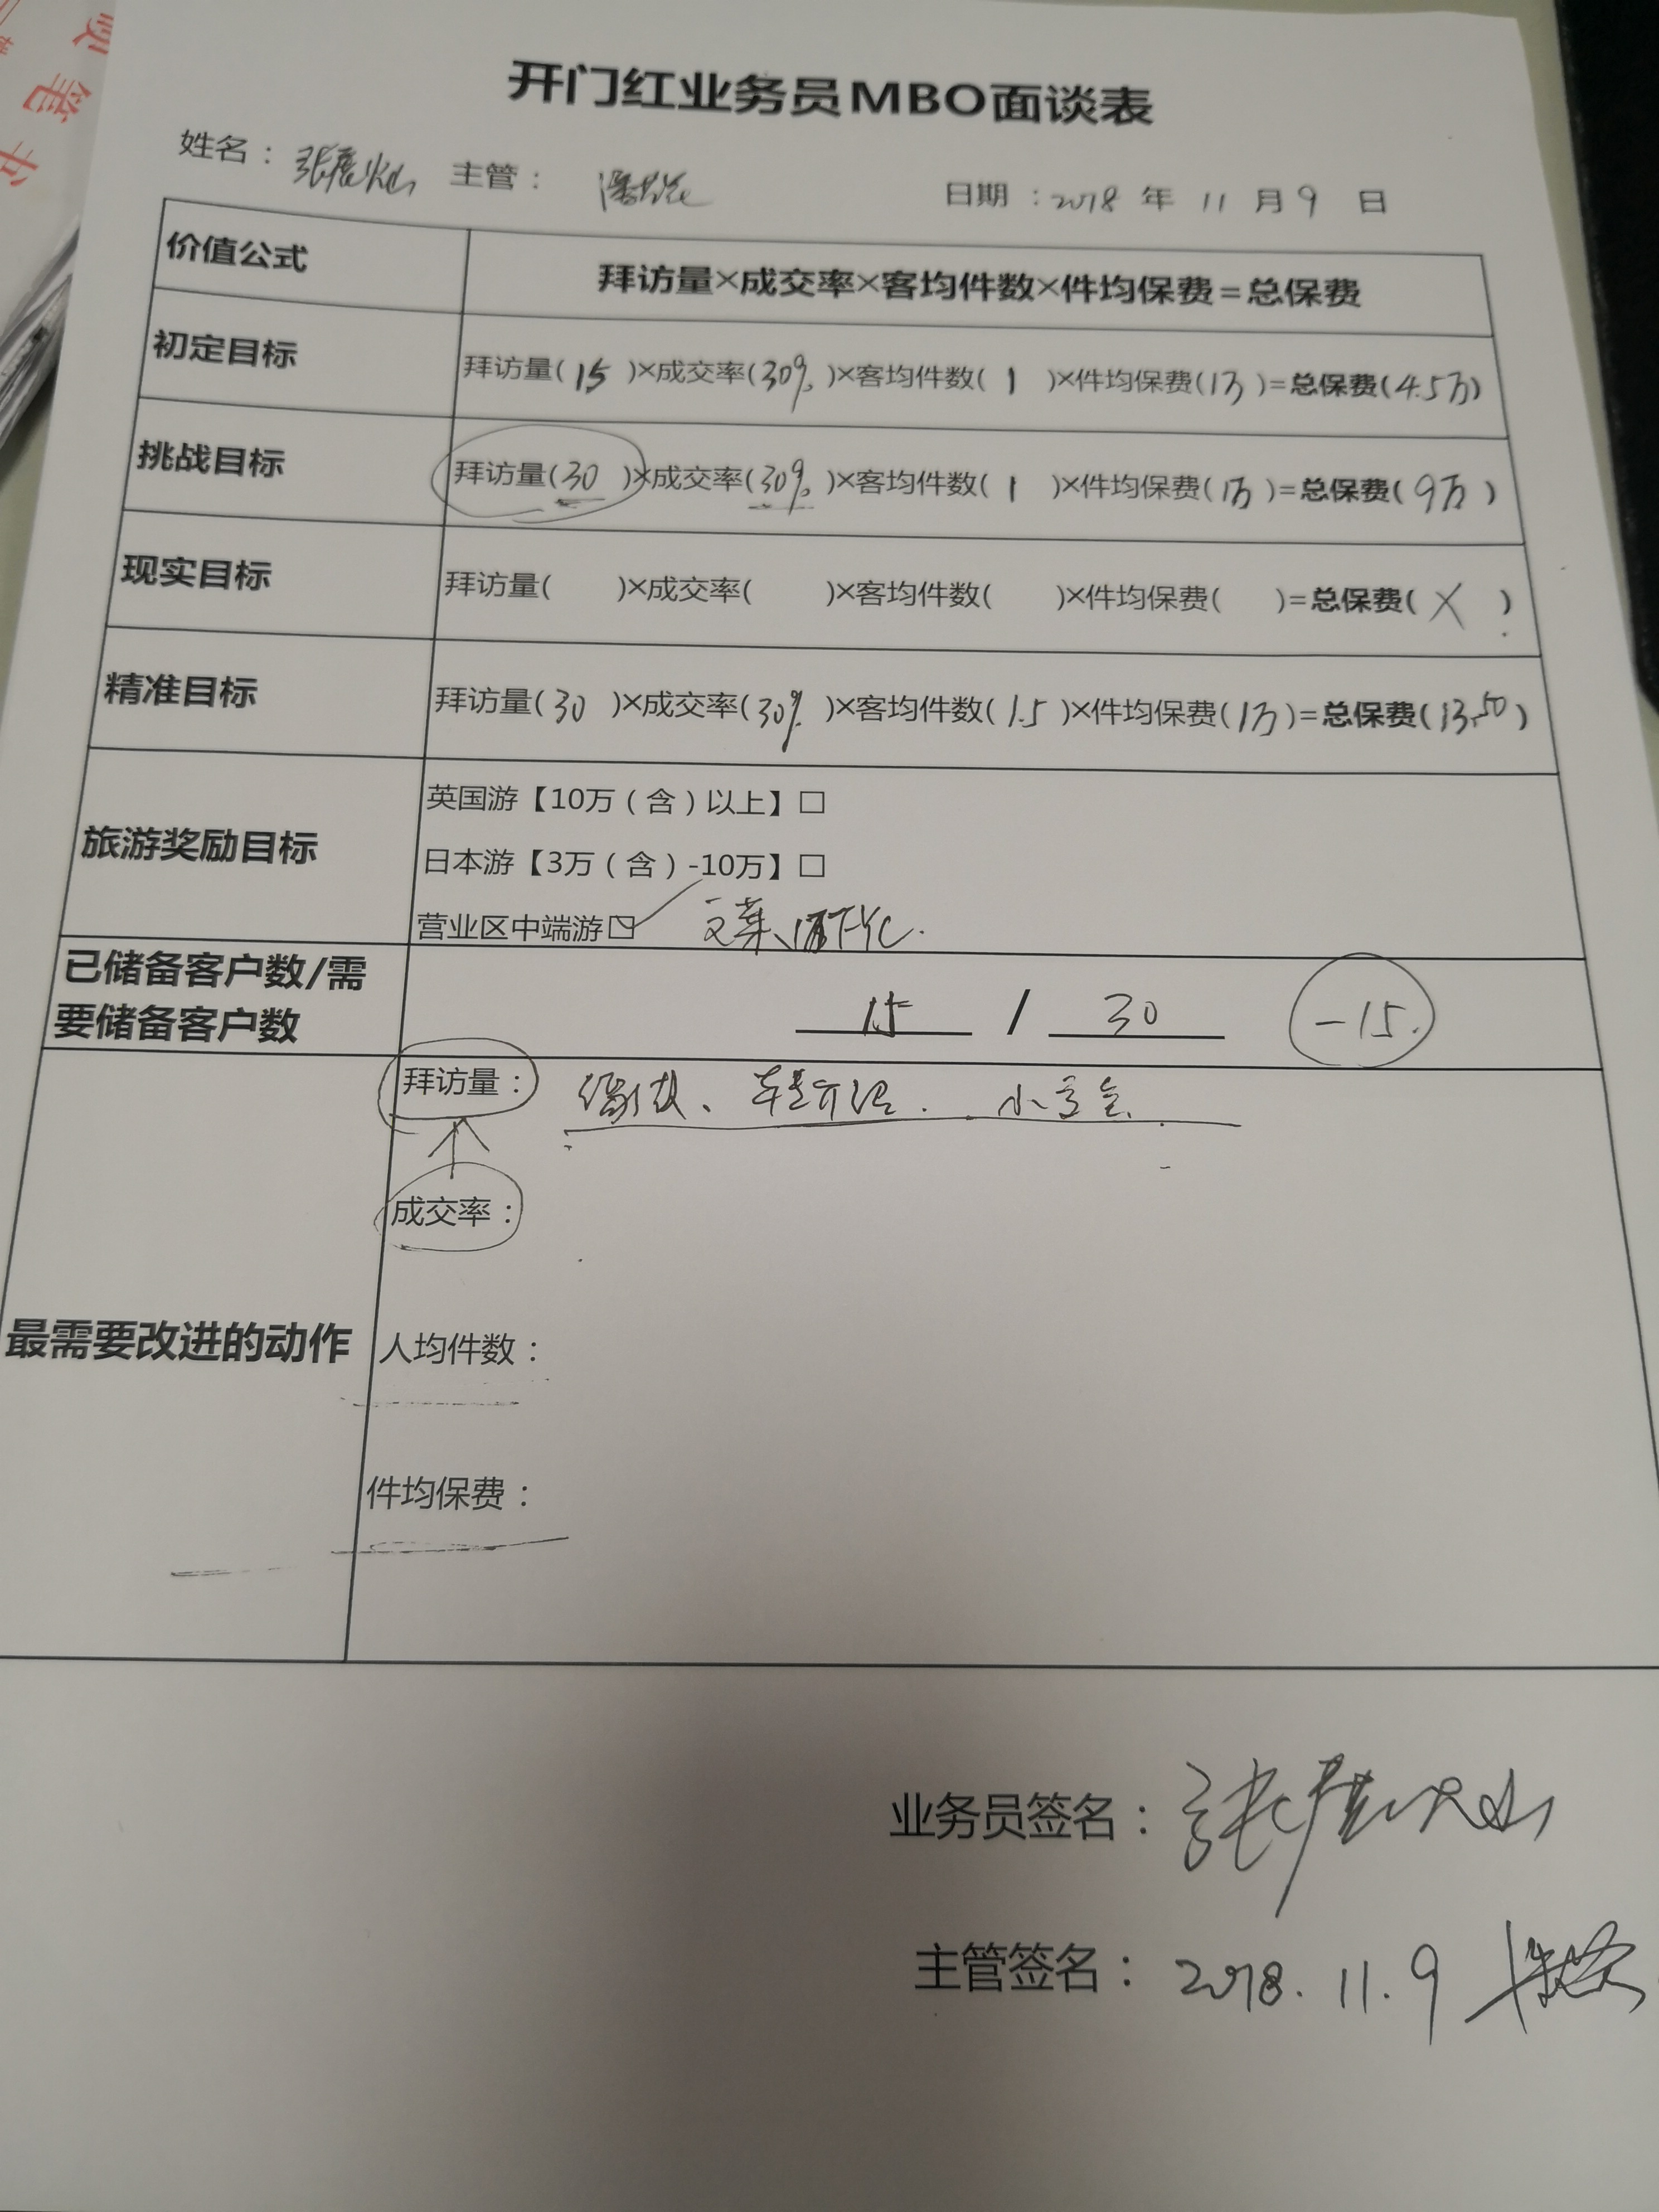 开门红业务员MBO面谈表
姓名： 主管： 日期：2018 年 11 月 9 日
价值公式 拜访量×成交率×客均件数×件均保费=总保费
初定目标 拜访量(15)×成交率(30%)×客均件数(1)×件均保费(1万)=总保费(4.5万)
挑战目标 拜访量(30)×成交率(30%)×客均件数(1)×件均保费(1万)=总保费(9万)
现实目标 拜访量( )×成交率( )×客均件数( )×件均保费( )=总保费(X)
精准目标 拜访量(30)×成交率(30%)×客均件数(1.5)×件均保费(1万)=总保费(13.50)
旅游奖励目标
英国游【10万（含）以上】□
日本游【3万（含）-10万】□
营业区中端游□
已储备客户数/需
要储备客户数
15 / 30 -15.
最需要改进的动作
拜访量： 缘故、转介绍.
成交率：
人均件数：
件均保费：
业务员签名：
主管签名：2018.11.9